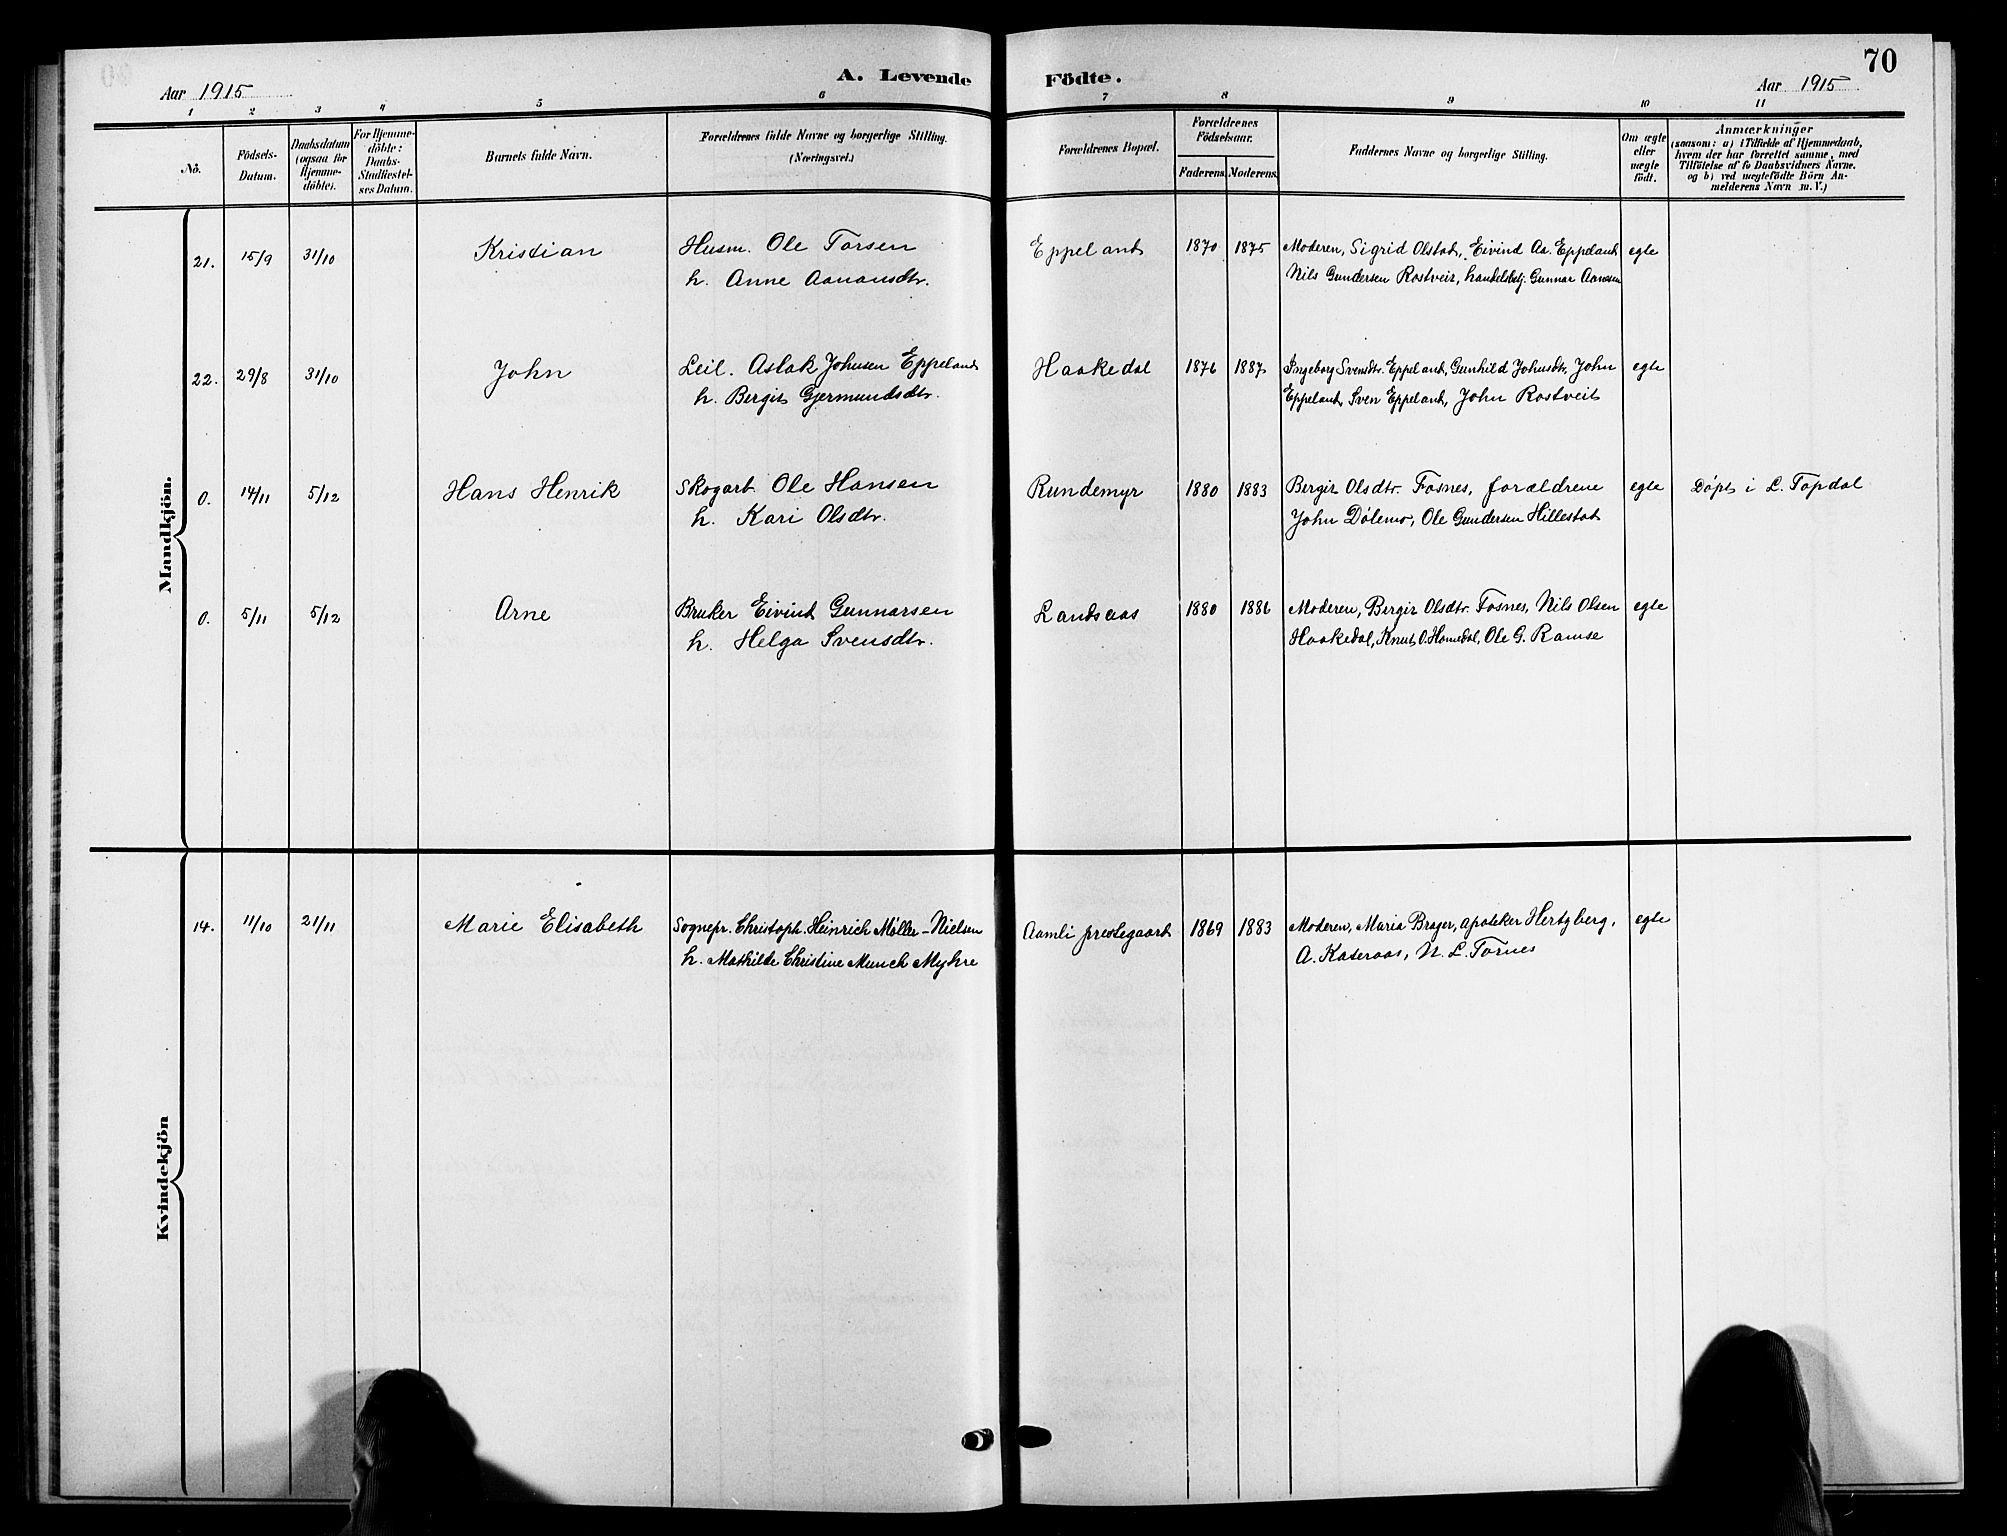 70
A. Levende Födte.
Aar 1915
Aar 1915
1 2 3 4 5 6 7 8 9 10 11
No.
Födsels-
Datum.
Daabsdatum
(ogsaa for
Hjemme-
döbte).
For Hjemme-
döbte:
Daabs-
Stadfæstel-
ses Datum.
Barnets fulde Navn.
Forældrenes fulde Navne og borgerlige Stilling.
(Næringsvei.)
Forældrenes Bopæl.
Forældrenes
Födselsaar.
Faderens. Moderens.
Faddernes Navne og borgerlige Stilling.
Om ægte
eller
uægte
födt.
Anmærkninger
(saasom: a) i Tilfælde af Hjemmedaab,
hvem der har forrettet samme, med
Tilföielse af to Daabsvidners Navne.
og b) ved uægtefödte Börn An-
melderens Navn m. V.)
Mandkjön.
21. 15/9 31/10 Kristian Husm. Ole Torsen Eppeland 1870 1875 Moderen, Sigrid Olstad, Eivind Aa. Eppeland egte
h. Anne Aanonsdtr. Nils Gundersen Rostveit, handelsbetj. Gunnar Aanesen
22. 29/8 31/10 John Leil. Aslak Johnsen Eppeland Haakedal 1876 1887 Ingeborg Svensdtr. Eppeland, Gunhild Johnsdtr, John egte
h. Bergit Gjermundsdtr. Eppeland, Sven Eppeland, John Rostveit
0. 14/11 5/12 Hans Henrik Skogarb. Ole Hansen Rundemyr 1880 1883 Bergit Olsdtr. Fosnes, forældrene egte Døpt i L. Topdal
h. Kari Olsdtr. John Dölemo, Ole Gundersen Hillestad
0. 5/11 5/12 Arne Bruker Eivind Gunnarsen Landsaas 1880 1886 Moderen, Bergit Olsdtr. Fosnes, Nils Olsen egte
h. Helga Svensdtr. Haakedal, Knut O. Homdal, Ole G. Ramse
Kvindekjön
14. 11/10 21/11 Marie Elisabeth Sognepr. Christoph. Heinrich Møller-Nielsen Aamli prestegaard 1869 1883 Moderen, Maria Brager, apoteker Hertzberg, egte
h. Mathilde Christine Munch Myhre A. Kateraas, N. L. Tornes